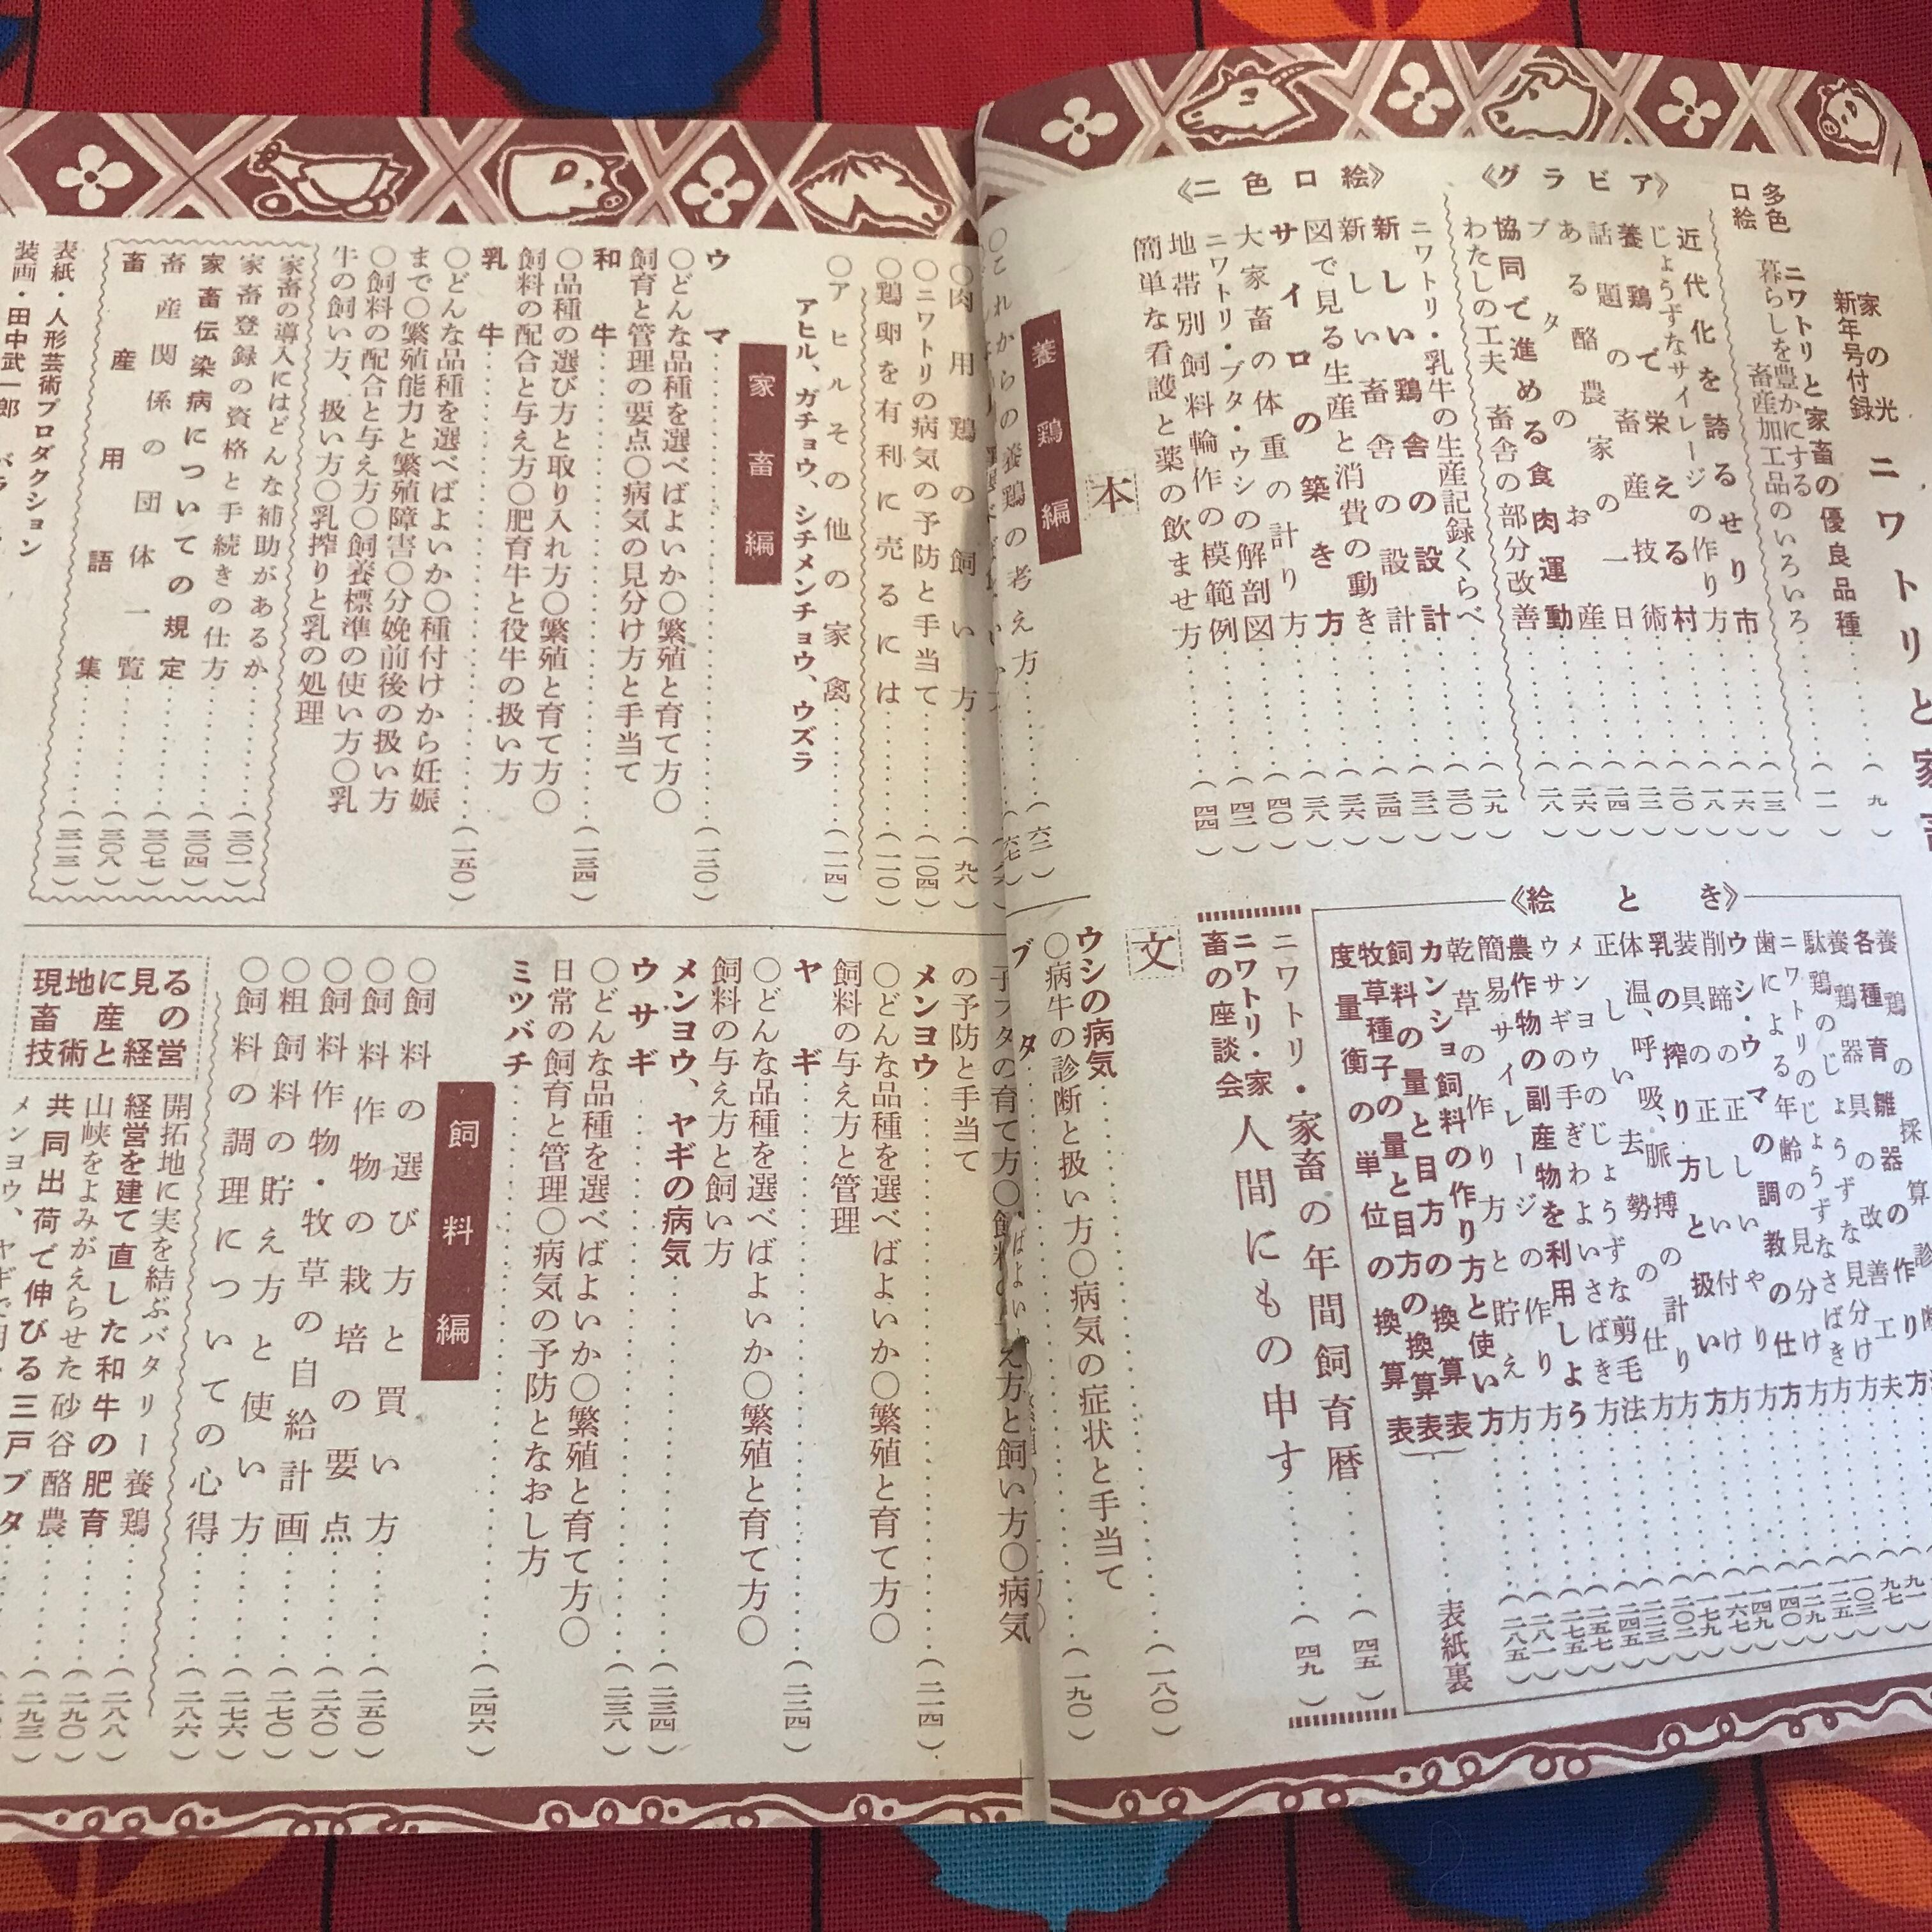 家の光
新年号付録
ニワトリと家
多色
口絵
ニワトリと家畜の優良品種……(九)
暮らしを豊かにする
畜産加工品のいろいろ……(一一)
《グラビア》
近代化を誇るせり市……(一三)
じょうずなサイレージの作り方……(一六)
養鶏で栄える村……(一八)
話題の畜産技術……(二〇)
ある酪農家の一日……(二二)
ブタのお産……(二四)
協同で進める食肉運動……(二六)
わたしの工夫 畜舎の部分改善……(二八)
《二色口絵》
ニワトリ・乳牛の生産記録くらべ……(二九)
新しい鶏舎の設計……(三〇)
新しい畜舎の設計……(三二)
図で見る生産と消費の動き……(三四)
サイロの築き方……(三六)
大家畜の体重の計り方……(三八)
ニワトリ・ブタ・ウシの解剖図……(四〇)
地帯別飼料輪作の模範例……(四二)
簡単な看護と薬の飲ませ方……(四四)
《絵とき》
養鶏の採算診断
各種育雛器の作り方
養鶏器具の改善工夫
駄鶏のじょうずな見分け方
ニワトリのじょうずなさばき方
歯による年齢の見分け方
ウシ・ウマの調教の仕方
削蹄の正しいやり方
装具の正しい付け方
乳の搾り方と扱い方
体温、呼吸、脈搏の計り方
正しい去勢の仕方
メンヨウのじょうずな剪毛法
ウサギの手ぎわよいさばき方
農作物の副産物を利用しよう
簡易サイレージの作り方
乾草の作り方と貯え方
カンショ飼料の作り方と使い方
飼料の量と目方の換算表
牧草種子の量と目方の換算表
度量衡の単位の換算表
……表紙裏
ニワトリ・家畜の年間飼育暦……(四五)
ニワトリ・家
畜の座談会
人間にもの申す……(四九)
本文
養鶏編
〇これからの養鶏の考え方……(六二)
〇肉用鶏の飼い方……(九八)
〇ニワトリの病気の予防と手当て……(一〇四)
〇鶏卵を有利に売るには……(一一〇)
〇アヒルその他の家禽……(一一四)
アヒル、ガチョウ、シチメンチョウ、ウズラ
家畜編
ウマ……(一二〇)
〇どんな品種を選べばよいか〇繁殖と育て方〇
飼育と管理の要点〇病気の見分け方と手当て
和牛……(一三四)
〇品種の選び方と取り入れ方〇繁殖と育て方〇
飼料の配合と与え方〇肥育牛と役牛の扱い方
乳牛……(一五〇)
〇どんな品種を選べばよいか〇種付けから妊娠
まで〇繁殖能力と繁殖障害〇分娩前後の扱い方
〇飼料の配合と与え方〇飼養標準の使い方〇乳
牛の飼い方、扱い方〇乳搾りと乳の処理
ウシの病気……(一八〇)
〇病牛の診断と扱い方〇病気の症状と手当て
ブタ……(一九〇)
の予防と手当て
メンヨウ……(二一四)
〇どんな品種を選べばよいか〇繁殖と育て方〇
飼料の与え方と管理
ヤギ……(二二四)
〇どんな品種を選べばよいか〇繁殖と育て方〇
飼料の与え方と飼い方
メンヨウ、ヤギの病気……(二三四)
ウサギ……(二三八)
〇どんな品種を選べばよいか〇繁殖と育て方〇
日常の飼育と管理〇病気の予防となおし方
ミツバチ……(二四六)
飼料編
〇飼料の選び方と買い方……(二五〇)
〇飼料作物の栽培の要点……(二六〇)
〇飼料作物・牧草の自給計画……(二七〇)
〇粗飼料の貯え方と使い方……(二七六)
〇飼料の調理についての心得……(二八六)
現地に見る
畜産の
技術と経営
開拓地に実を結ぶバタリー養鶏……(二八八)
経営を建て直した和牛の肥育……(二九〇)
山峡をよみがえらせた砂谷酪農……(二九三)
共同出荷で伸びる三戸ブタ
家畜の導入にはどんな補助があるか……(三〇一)
家畜登録の資格と手続きの仕方……(三〇四)
家畜伝染病についての規定……(三〇七)
畜産関係の団体一覧……(三〇八)
畜産用語集……(三一三)
表紙・人形芸術プロダクション
装画・田中武一郎